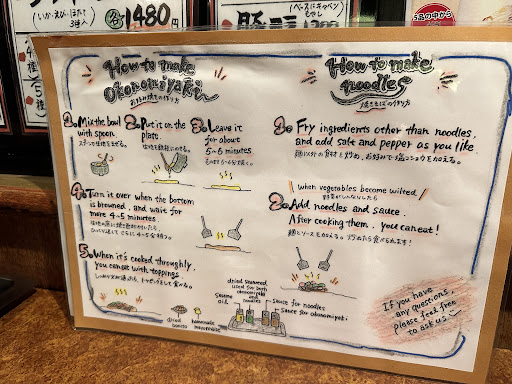 各1480円
いか・えび・ほたて
3種入
豚玉
(ベースにキャベツ
もやし
5品の中から
How to make
Okonomiyaki
お好み焼きの作り方
1. Mix the bowl
with spoon.
2. Put it on the
plate.
3. Leave it
for about
5~6 minutes
4. Turn it over when the bottom
is browned, and wait for
more 4~5 minutes
5. When it's cooked throughly,
you can eat with toppings
How to make
noodles
焼きそばの作り方
1. Fry ingredients other than noodles,
and add salt and pepper as you like.
麺以外の食材を炒め、お好みで塩コショウを加える。
when vegetables become wilted,
野菜がしんなりしたら
2. Add noodles and sauce.
After cooking them, you can eat!
麺とソースを加える。炒めたら食べられます!
dried seaweed,
used for both
okonomiyaki
and
noodles
Sesame
oil
sauce for noodles
sauce for okonomiyaki
dried
bonito
homemade
mayonnaise
If you have
any questions,
please feel free
to ask us